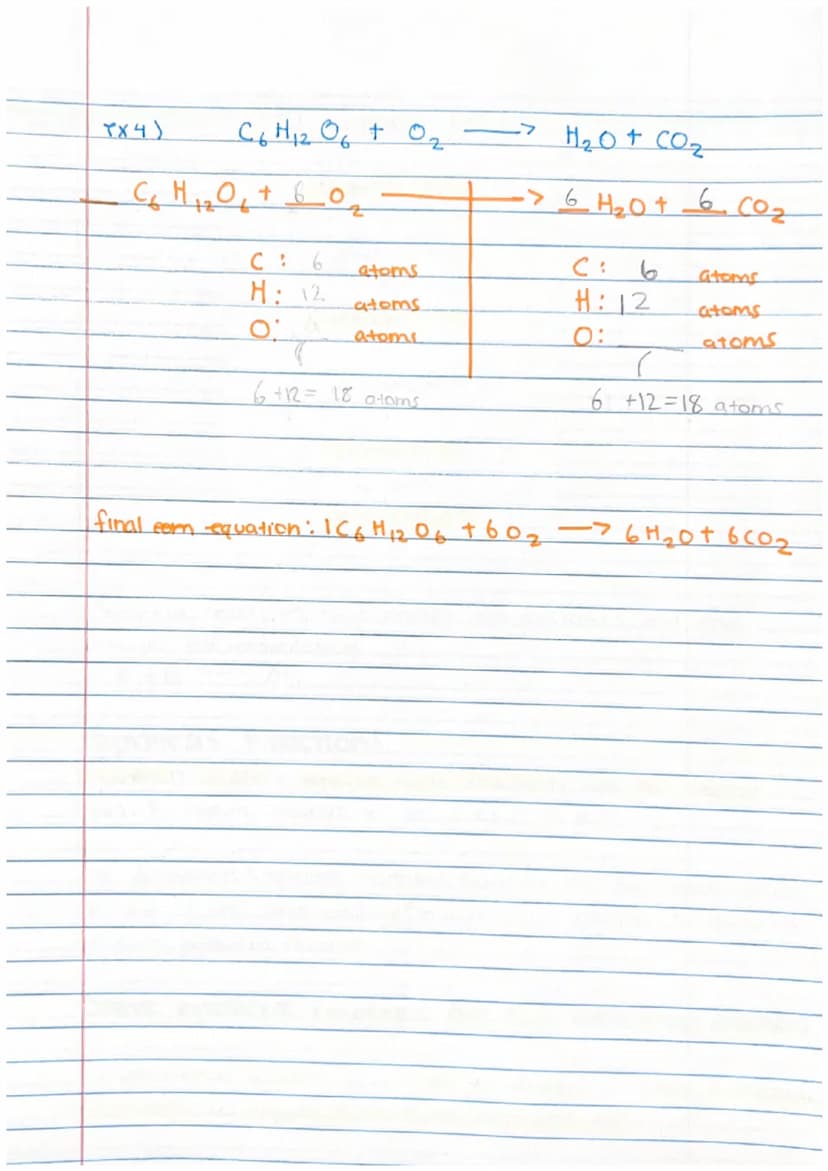 ex4) C₆H₁₂O₆ + O₂ → H₂O + CO₂
__ C₆H₁₂O₆ + 6 O₂ → 6 H₂O + 6 CO₂
C: 6 atoms C: 6 atoms
H: 12 atoms H: 12 atoms
O: atoms O: __ atoms
6+12= 18 atoms 6 +12=18 atoms
final equation: 1C₆H₁₂O₆ + 6O₂ → 6H₂O + 6CO₂